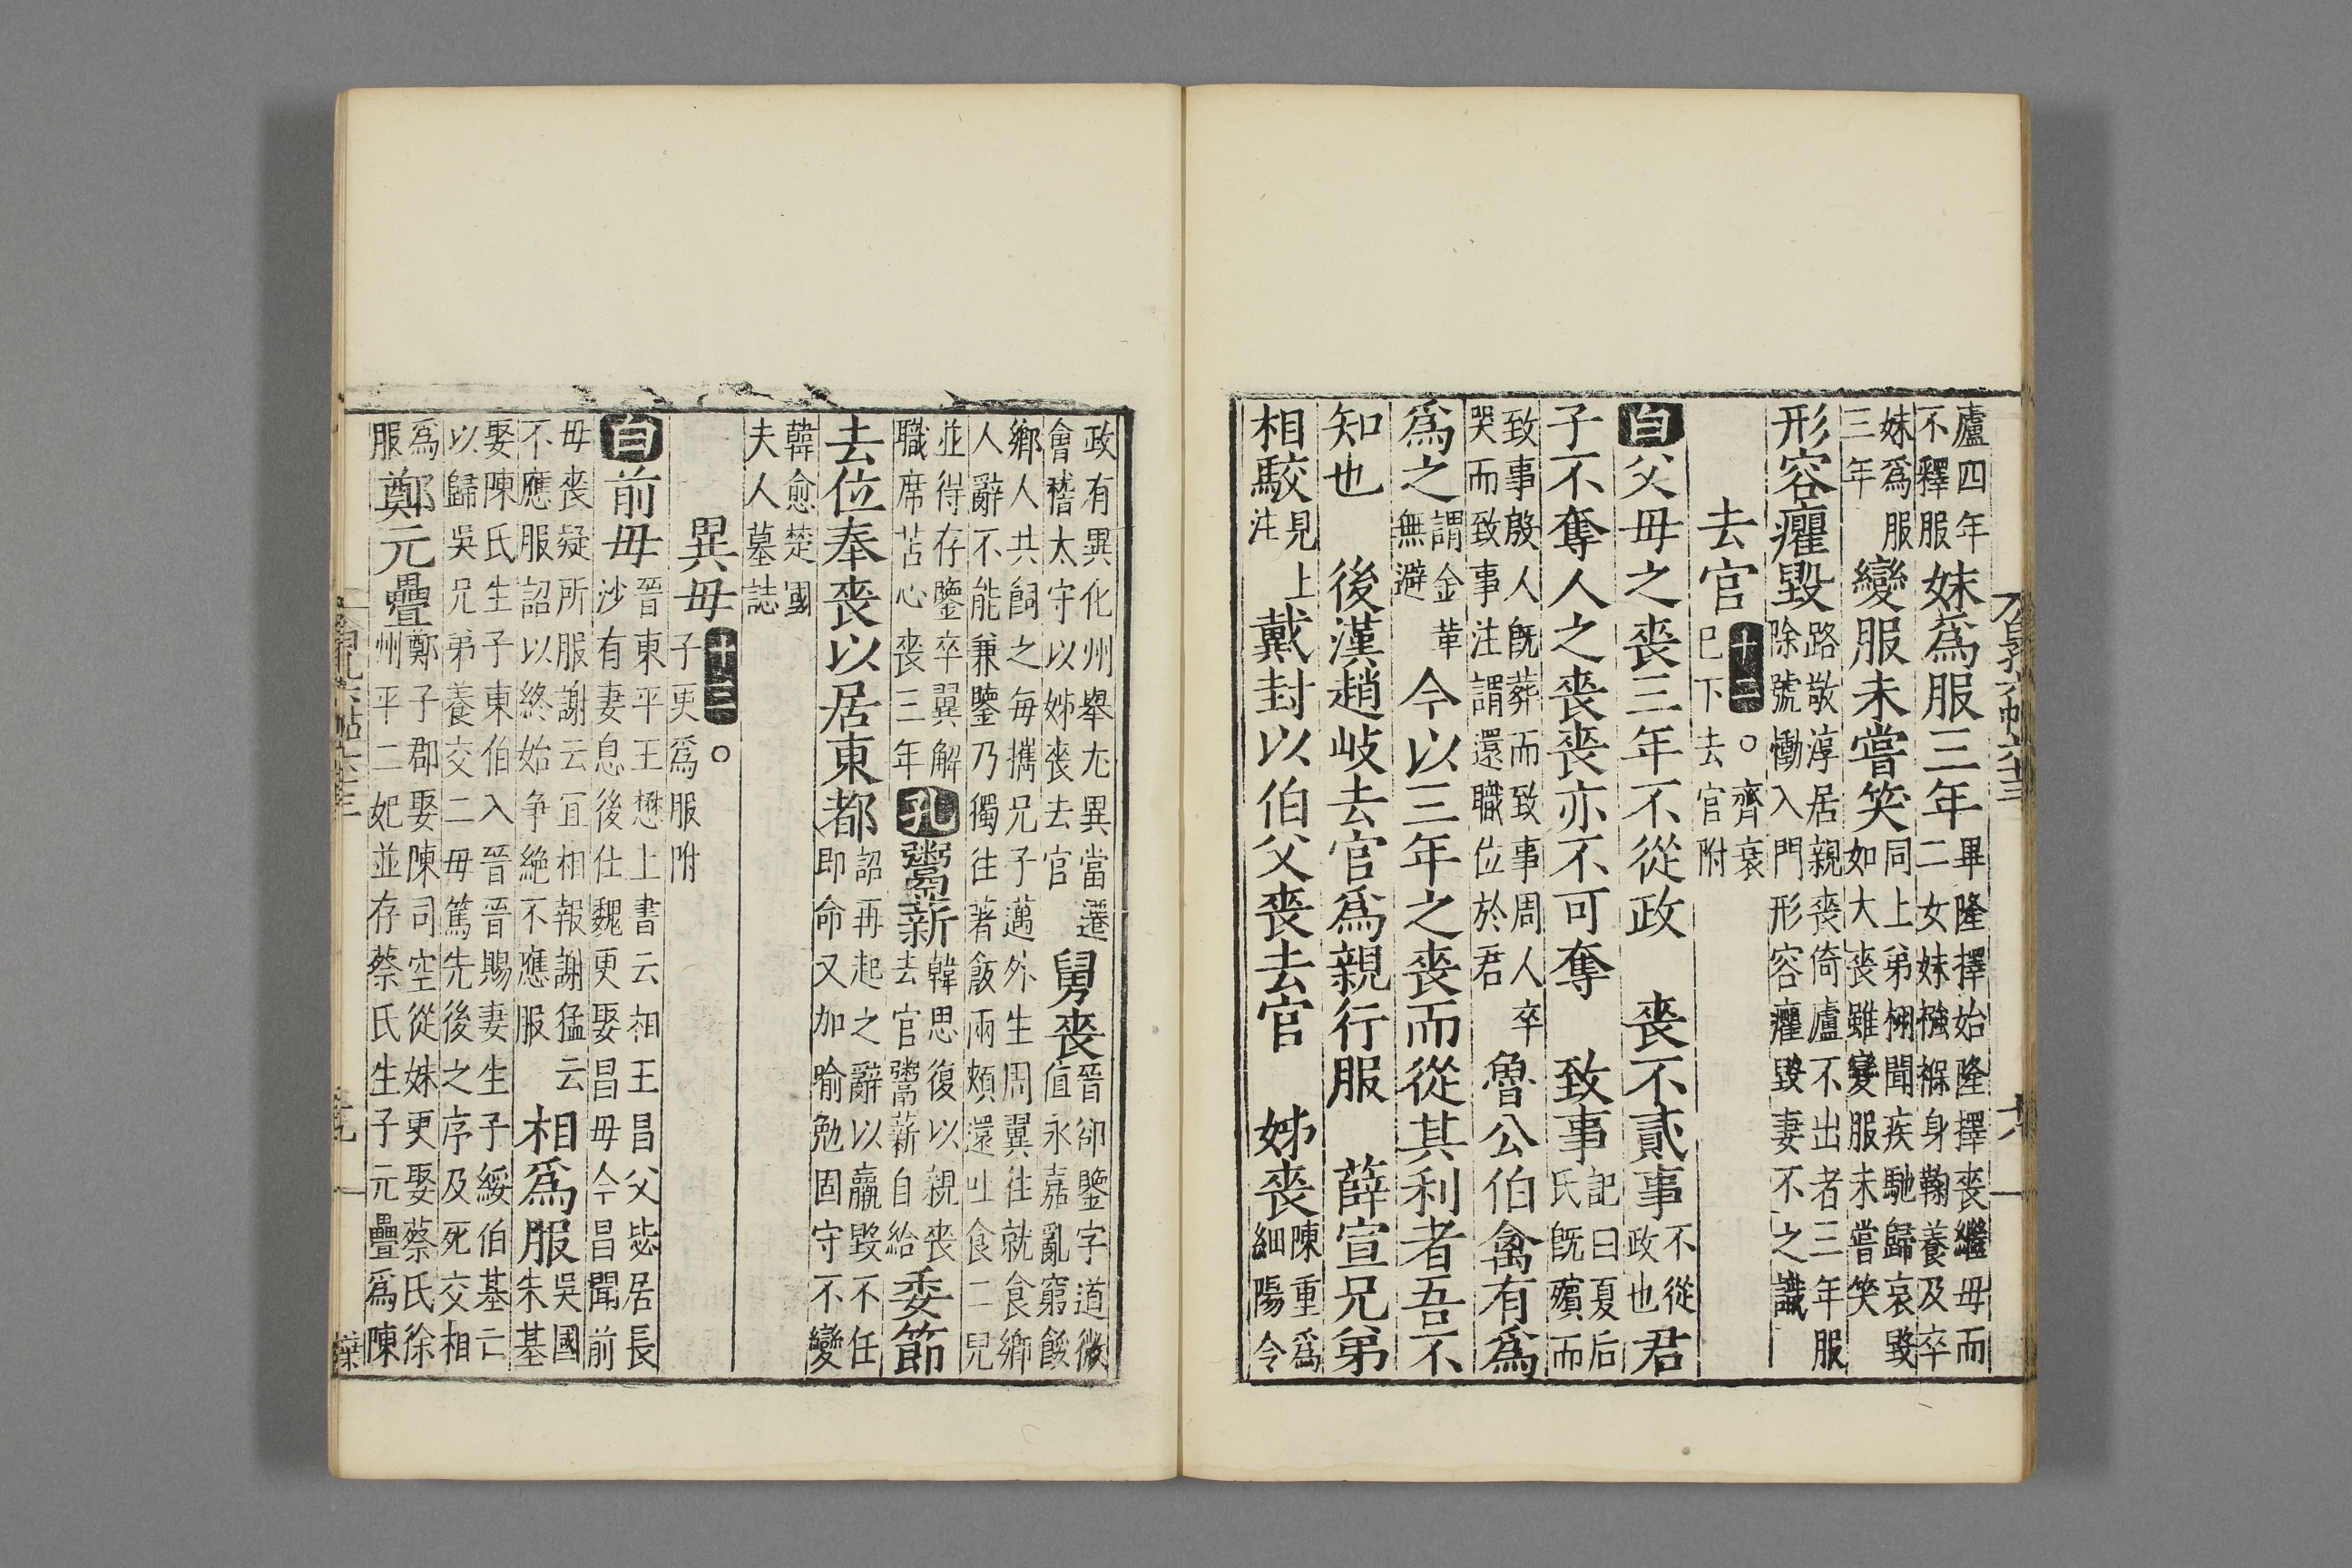 廬四年
不釋服
妹爲服三年
畢隆擇始隆擇喪繼母而
二女妹襁褓身鞠養及卒
妹爲服
三年
變服未嘗笑
同上弟栩聞疾馳歸哀毀
如大喪雖變服未嘗笑
形容癯毀
路敬淳居親喪倚廬不出者三年服
除號慟入門形容癯毀妻不之識
去官
十二
○齊衰
已下去官附
白父母之喪三年不從政 喪不貳事
不從
政也
君
子不奪人之喪喪亦不可奪 致事
記曰夏后
氏旣殯而
致事殷人旣葬而致事周人卒
哭而致事注謂還職位於君
魯公伯禽有爲
爲之
謂金革
無避
今以三年之喪而從其利者吾不
知也 後漢趙岐去官爲親行服 薛宣兄弟
相駮
見上
注
戴封以伯父喪去官 姊喪
陳重爲
細陽令
政有異化州舉尢異當遷
會稽太守以姊喪去官
舅喪
晉郤鑒字道徽
值永嘉亂窮餒
鄉人共飼之每攜兄子邁外生周翼往就食鄉
人辭不能兼鑒乃獨往著飯兩頰還吐食二兒
並得存鑒卒翼解
職席苫心喪三年
孔鬻薪
韓思復以親喪
去官鬻薪自給
委節
去位奉喪以居東都
詔再起之辭以羸毀不任
即命又加喻勉固守不變
韓愈楚國
夫人墓誌
異母
十三
○
子更爲服附
白前母
晉東平王懋上書云相王昌父毖居長
沙有妻息後仕魏更娶昌母今昌聞前
母喪疑所服謝云宜相報謝猛云
不應服詔以終始爭絶不應服
相爲服
吳國
朱基
娶陳氏生子東伯入晉晉賜妻生子綏伯基亡
以歸吳兄弟養交二母篤先後之序及死交相
爲
服
鄭元疊
鄭子郡娶陳司空從妹更娶蔡氏徐
州平二妃並存蔡氏生子元疊爲陳